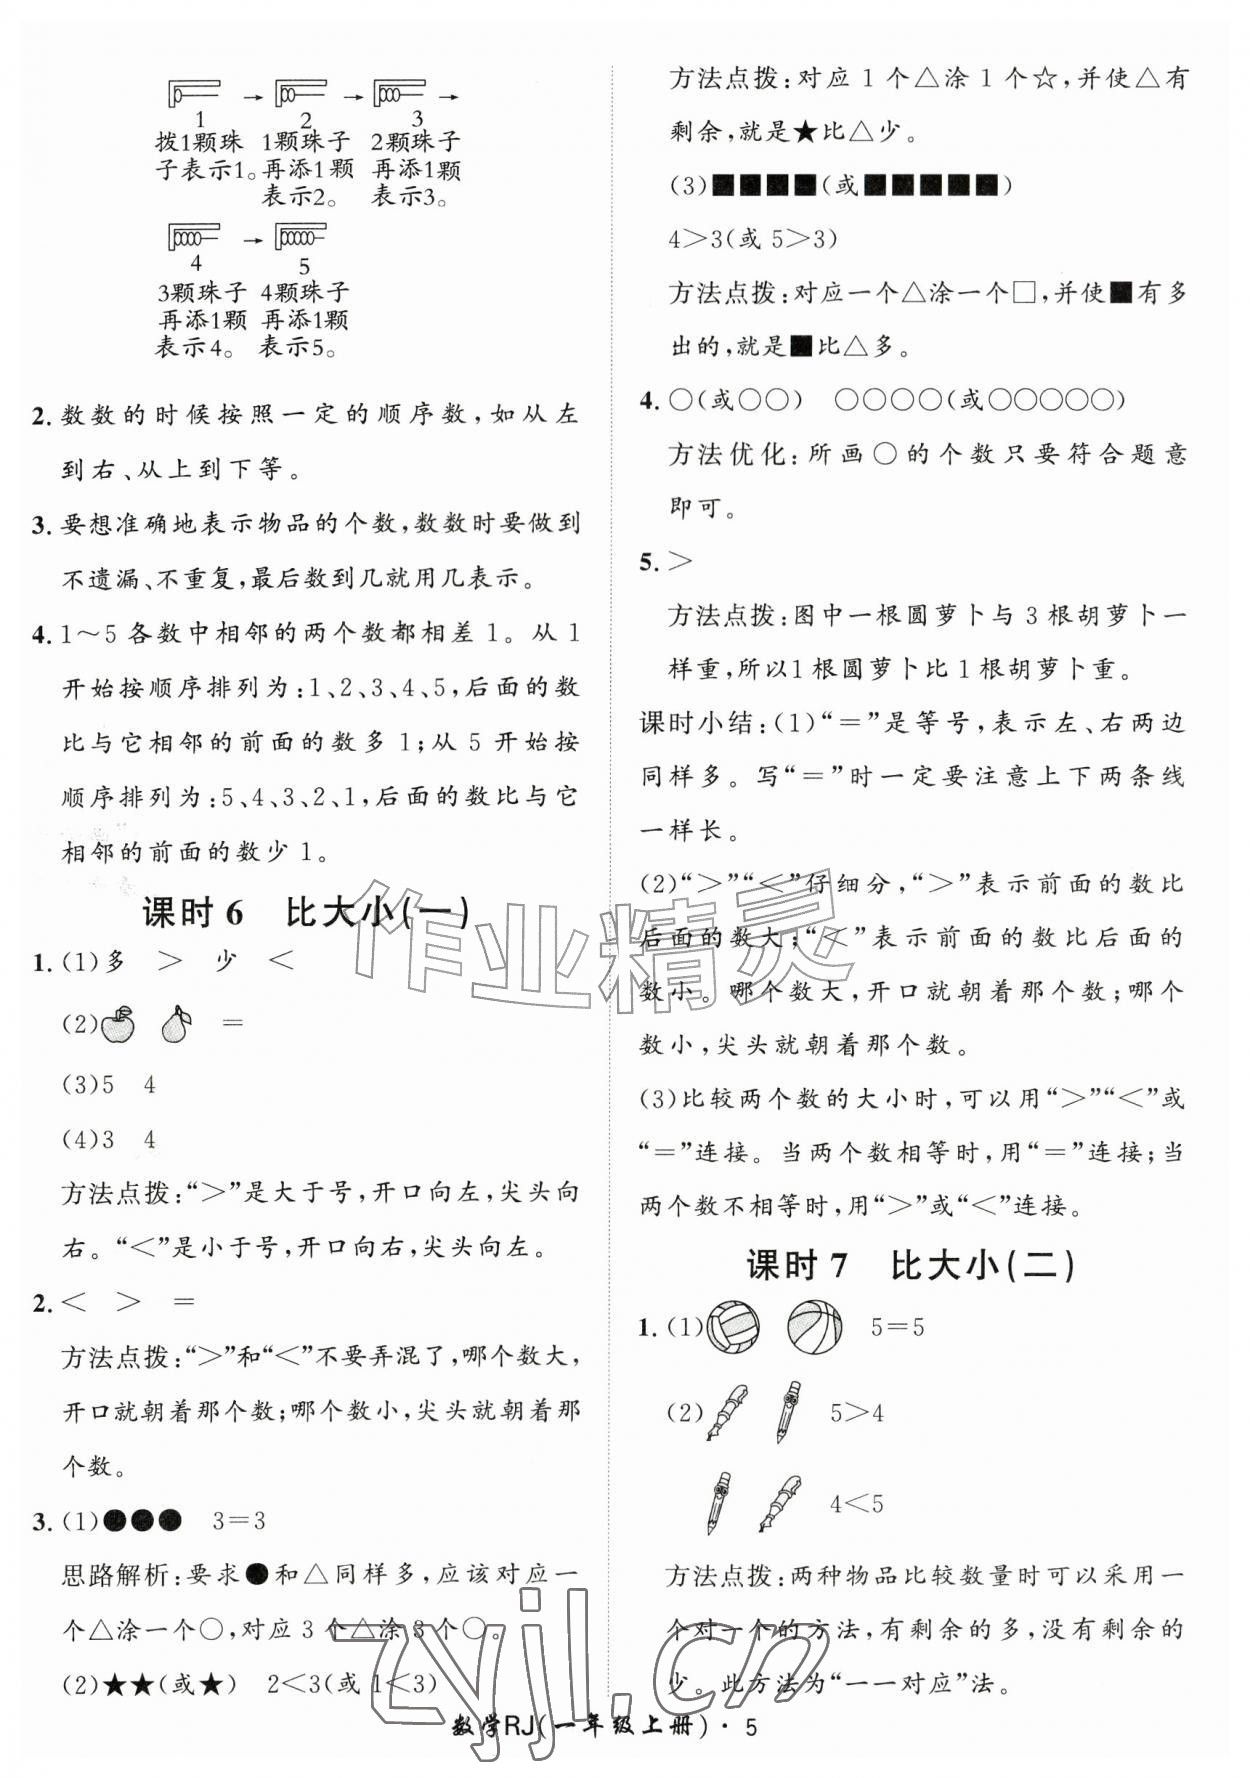 1 2 3
拨1颗珠 1颗珠子 2颗珠子
子表示1。 再添1颗 再添1颗
表示2。 表示3。
4 5
3颗珠子 4颗珠子
再添1颗 再添1颗
表示4。 表示5。
2. 数数的时候按照一定的顺序数,如从左
到右、从上到下等。
3. 要想准确地表示物品的个数,数数时要做到
不遗漏、不重复,最后数到几就用几表示。
4. 1～5 各数中相邻的两个数都相差 1。从 1
开始按顺序排列为:1、2、3、4、5,后面的数
比与它相邻的前面的数多 1;从 5 开始按
顺序排列为:5、4、3、2、1,后面的数比与它
相邻的前面的数少 1。
课时 6 比大小(一)
1. (1)多 > 少 <
(2) =
(3)5 4
(4)3 4
方法点拨:“>”是大于号,开口向左,尖头向
右。“<”是小于号,开口向右,尖头向左。
2. < > =
方法点拨:“>”和“<”不要弄混了,哪个数大,
开口就朝着那个数;哪个数小,尖头就朝着那
个数。
3. (1)●●● 3=3
思路解析:要求●和△同样多,应该对应一
个△涂一个○,对应 3 个△涂 3 个○。
(2)★★(或★) 2<3(或 1<3)
方法点拨:对应 1 个△涂 1 个☆,并使△有
剩余,就是★比△少。
(3)■■■■(或■■■■■)
4>3(或 5>3)
方法点拨:对应一个△涂一个□,并使■有多
出的,就是■比△多。
4. ○(或○○) ○○○○(或○○○○○)
方法优化:所画○的个数只要符合题意
即可。
5. >
方法点拨:图中一根圆萝卜与 3 根胡萝卜一
样重,所以1根圆萝卜比 1 根胡萝卜重。
课时小结:(1)“=”是等号,表示左、右两边
同样多。写“=”时一定要注意上下两条线
一样长。
(2)“>”“<”仔细分,“>”表示前面的数比
后面的数大;“<”表示前面的数比后面的
数小。哪个数大,开口就朝着那个数;哪个
数小,尖头就朝着那个数。
(3)比较两个数的大小时,可以用“>”“<”或
“=”连接。当两个数相等时,用“=”连接;当
两个数不相等时,用“>”或“<”连接。
课时 7 比大小(二)
1. (1) 5=5
(2) 5>4
4<5
方法点拨:两种物品比较数量时可以采用一
个对一个的方法,有剩余的多,没有剩余的
少。此方法为“一一对应”法。
数学RJ(一年级上册)·5
作业精灵
zyjl.cn